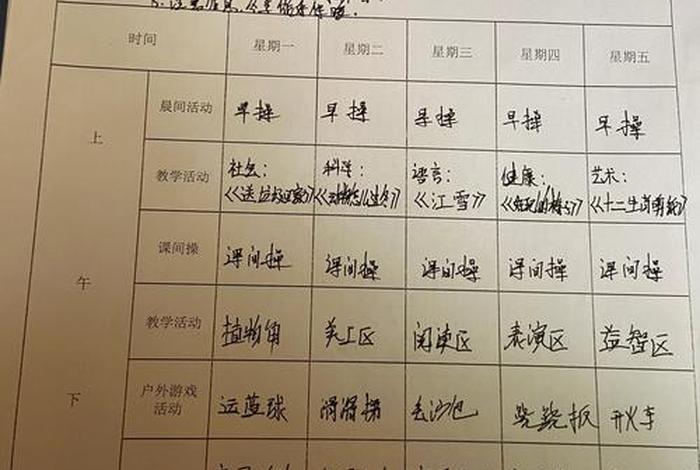 时间 星期一 星期二 星期三 星期四 星期五
上午
晨间活动 早操 早操 早操 早操 早操
教学活动 社会: 科学: 语言: 健康: 艺术:
《送垃圾回家》 《江雪》
课间操 课间操 课间操 课间操 课间操 课间操
教学活动 植物角 美工区 阅读区 表演区 益智区
下
户外游戏活动 运蓝球 滑滑梯 丢沙包 跷跷板 开火车